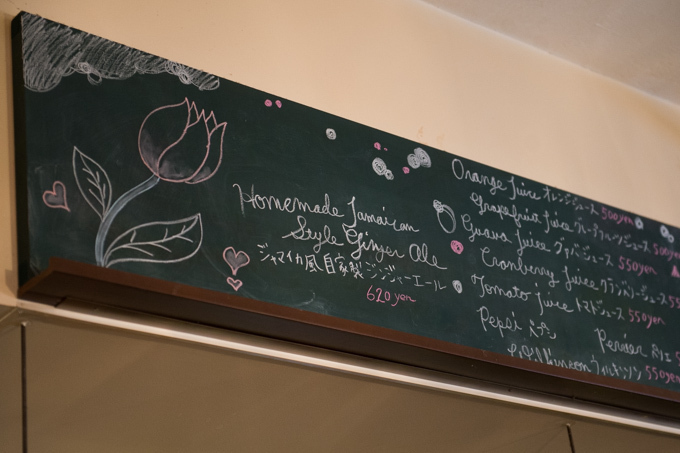 Homemade Jamaican
Style Ginger Ale
ジャマイカ風自家製ジンジャーエール
620yen
Orange Juice オレンジジュース 500yen
Grapefruit Juice グレープフルーツジュース 500yen
Guava Juice グァバジュース 550yen
Cranberry Juice クランベリージュース 55
Tomato Juice トマトジュース 550yen
Pepsi ペプシ
Perrier ペリエ 5
ウィルキンソン 550yen